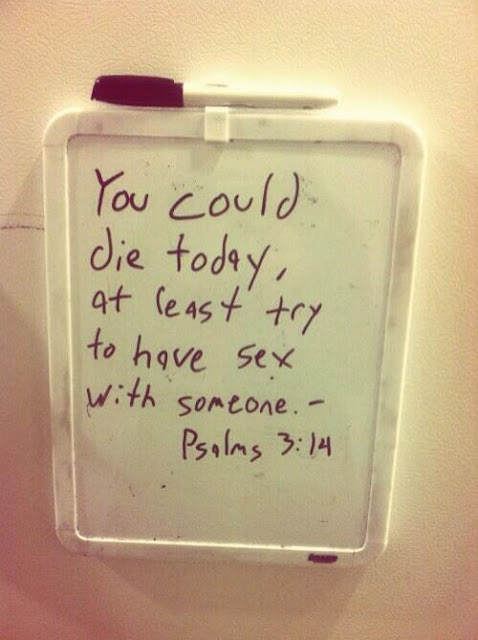 You could
die today,
at least try
to have sex
with someone. -
Psalms 3:14